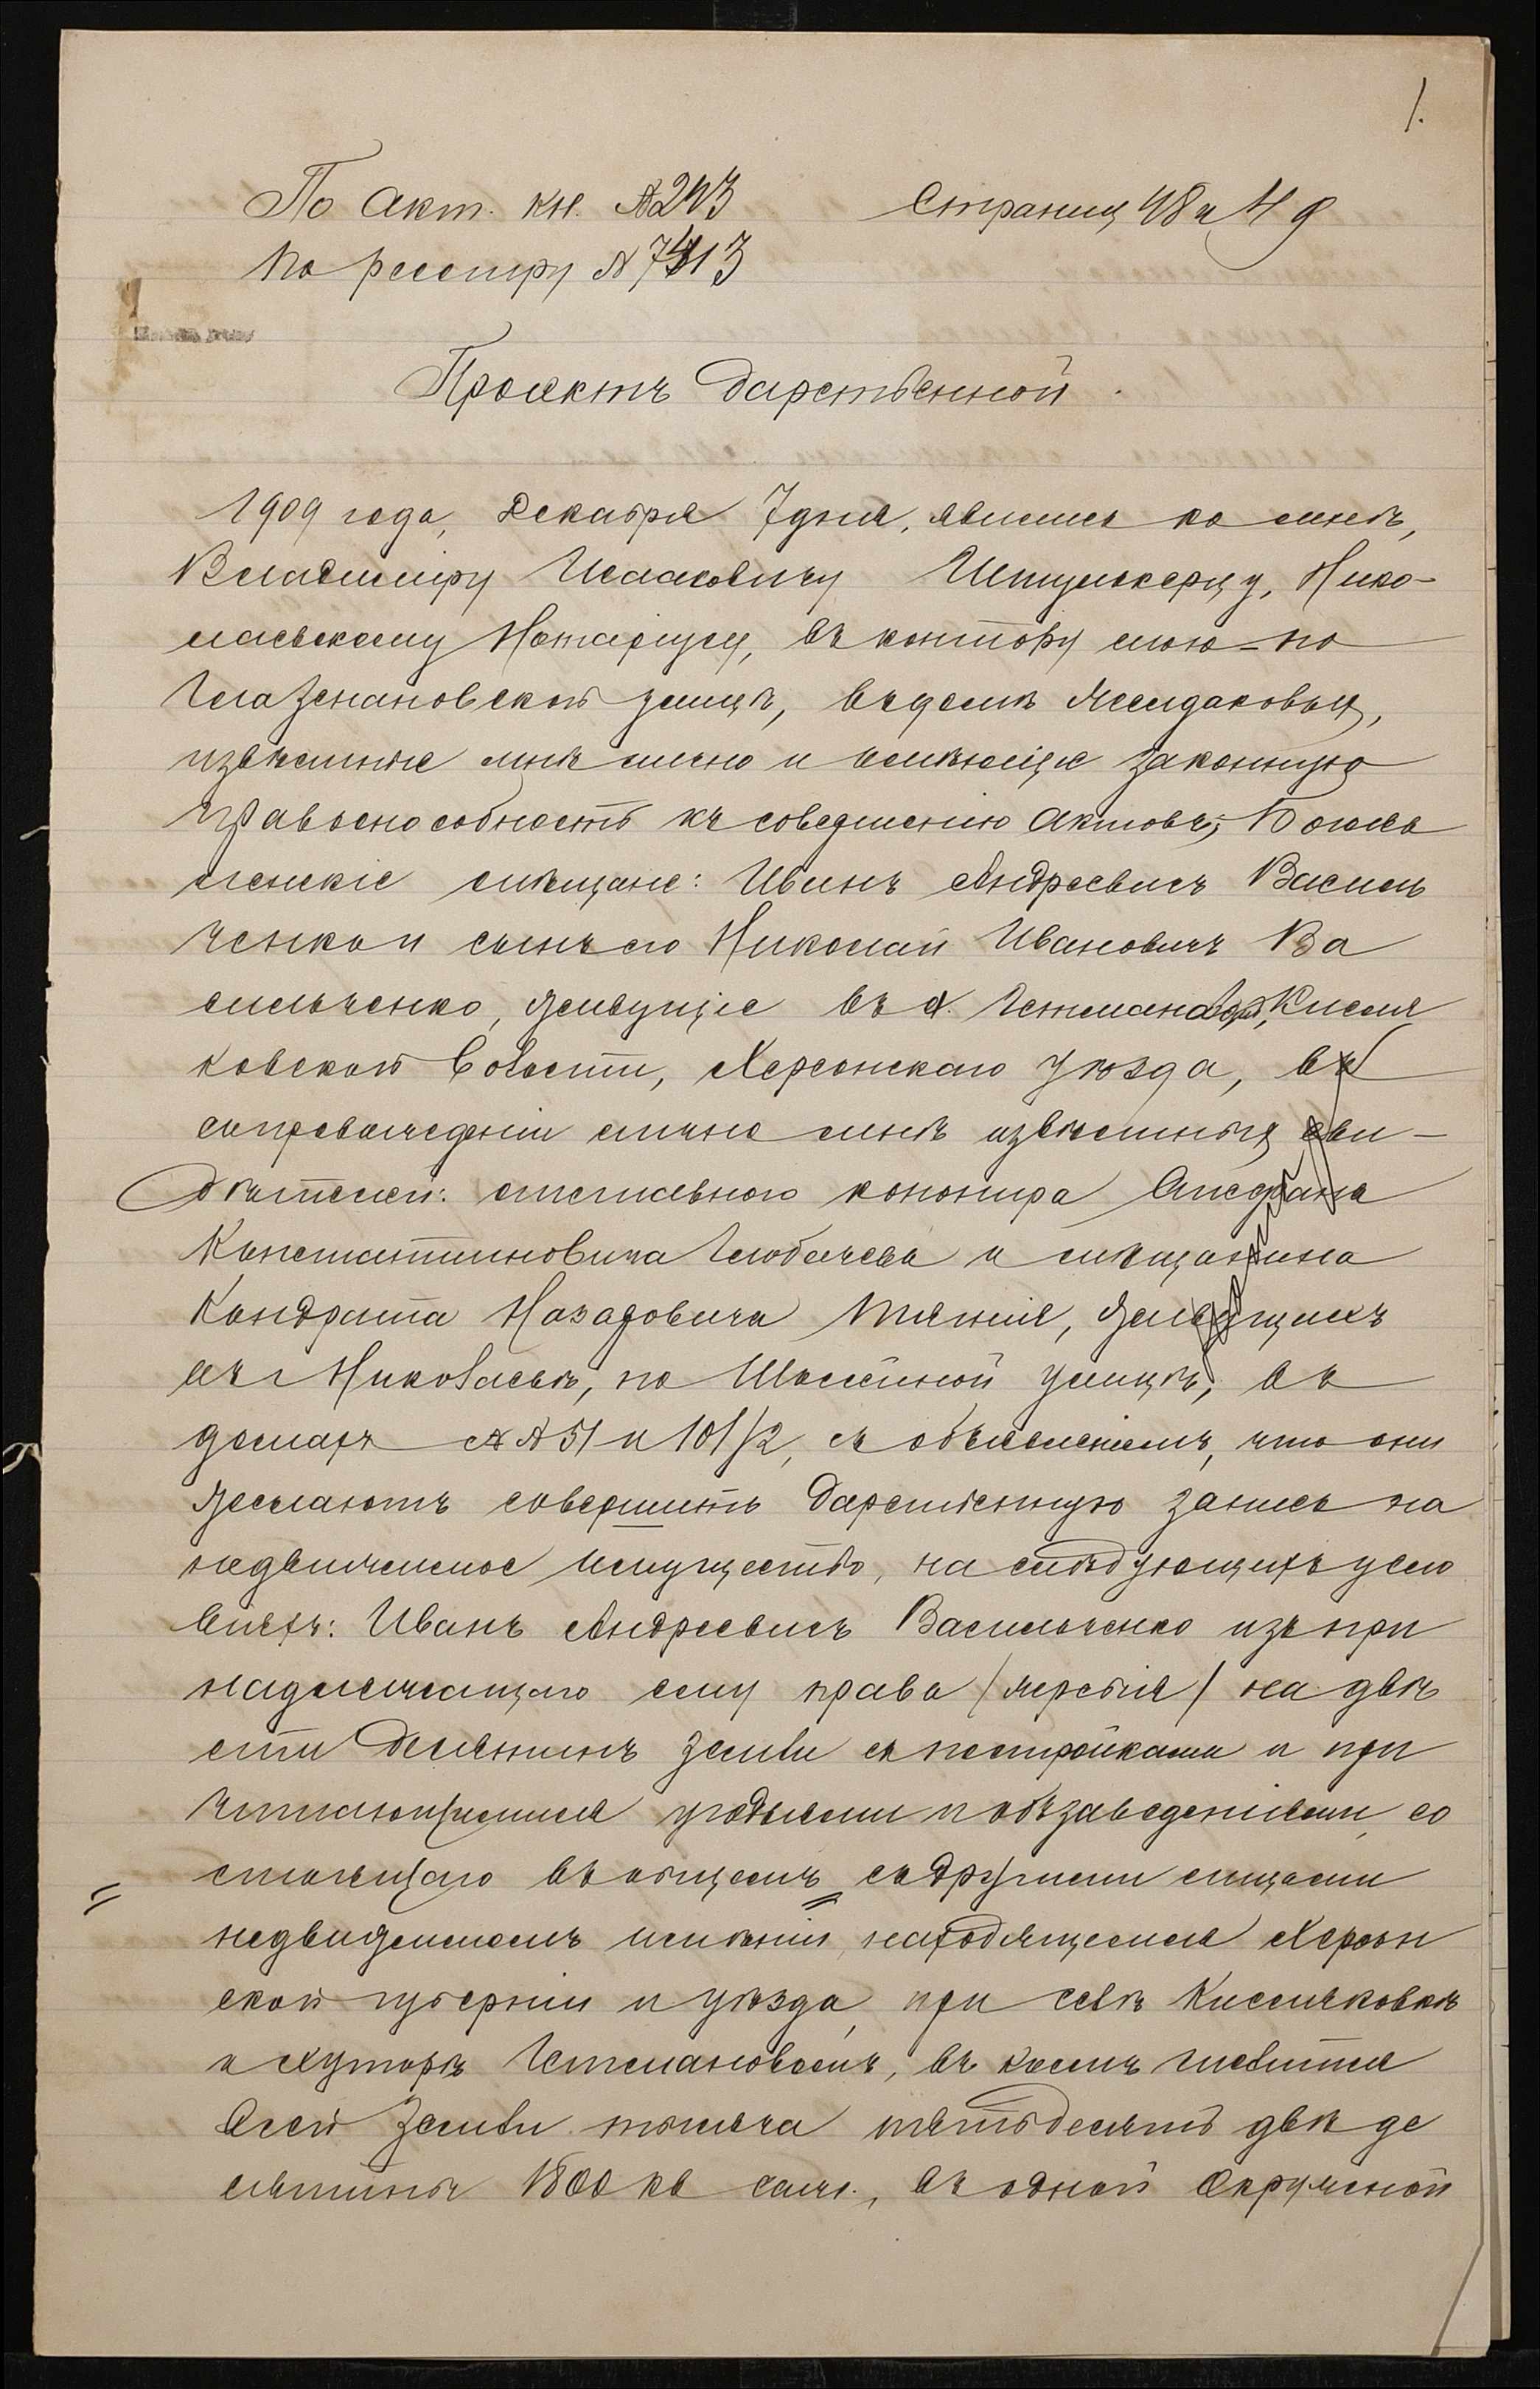 1.
По Акт. кн. № 243 Страниц 48 и 49
по реестру № 7413
Проектъ дарственной.
1909 года, Декабря 7 дня, явились ко мнѣ,
Владиміру Исааковичу Штулькерцу, Нико-
лаевскому Нотаріусу, въ контору мою по
Глазенаповской улицѣ, въ домѣ
извѣстные мнѣ лично и имѣющіе законную
правоспособность къ совершенію актовъ,
мѣщане: Иванъ Андреевичъ Василь
ченко и сынъ его Николай Ивановичъ Ва
сильченко, живущіе въ х. Гетмановкѣ, Кисля
ковской волости, Херсонскаго уѣзда, въ
сопровожденіи лично мнѣ извѣстныхъ сви-
дѣтелей: отставного канонира
Константиновича и мѣщанина
Кондрата Назаровича живущихъ
въ г Николаевѣ, по улицѣ, въ
домахъ №№ 51 и 101/2, съ объясненіемъ, что они
желаютъ совершить дарственную запись на
недвижимое имущество, на слѣдующихъ усло
віяхъ: Иванъ Андреевичъ Васильченко изъ при
надлежащаго ему права /жребія/ на двѣ
сти десятинъ земли съ постройками и при
читающимися угодьями и обзаведеніями, со
стоящаго въ общемъ съ другими лицами
недвижимомъ имѣніи, находящемся Херсон
ской губерніи и уѣзда, при селѣ Кисляковкѣ
и хуторѣ Гетмановкомъ, въ коемъ числится
всей земли тысяча пятьдесятъ двѣ де
сятины 1800 кв саж., въ одной окружной